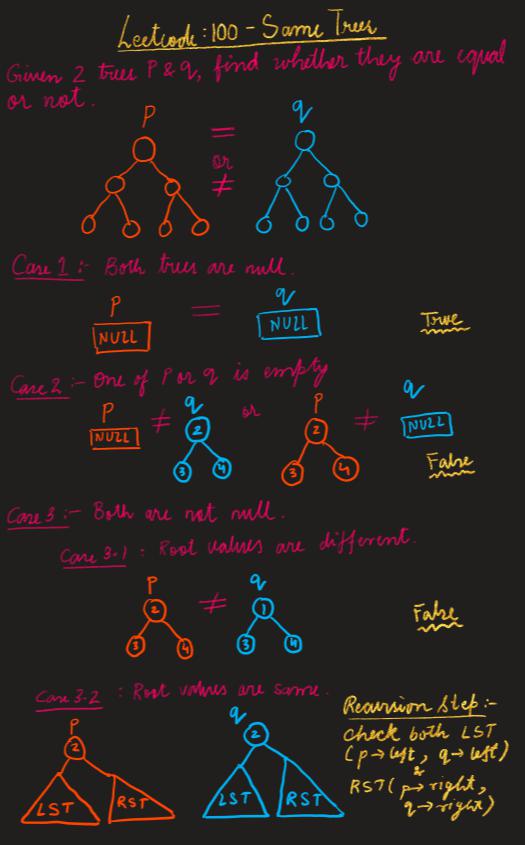 Leetcode : 100 - Same Trees
Given 2 trees P & q, find whether they are equal
or not.
P = q
or
≠
Case 1 :- Both trees are null.
P = q
NULL NULL True
Case 2 :- One of P or q is empty
P ≠ q or P ≠ q
NULL 2 2 NULL
3 4 3 4 False
Case 3 :- Both are not null.
Case 3.1 : Root values are different.
P ≠ q
2 1 False
3 4 3 4
Case 3.2 : Root values are same.
P q
2 2
LST RST LST RST
Recursion Step :-
check both LST
(p→left, q→left)
&
RST(p→right,
q→right)